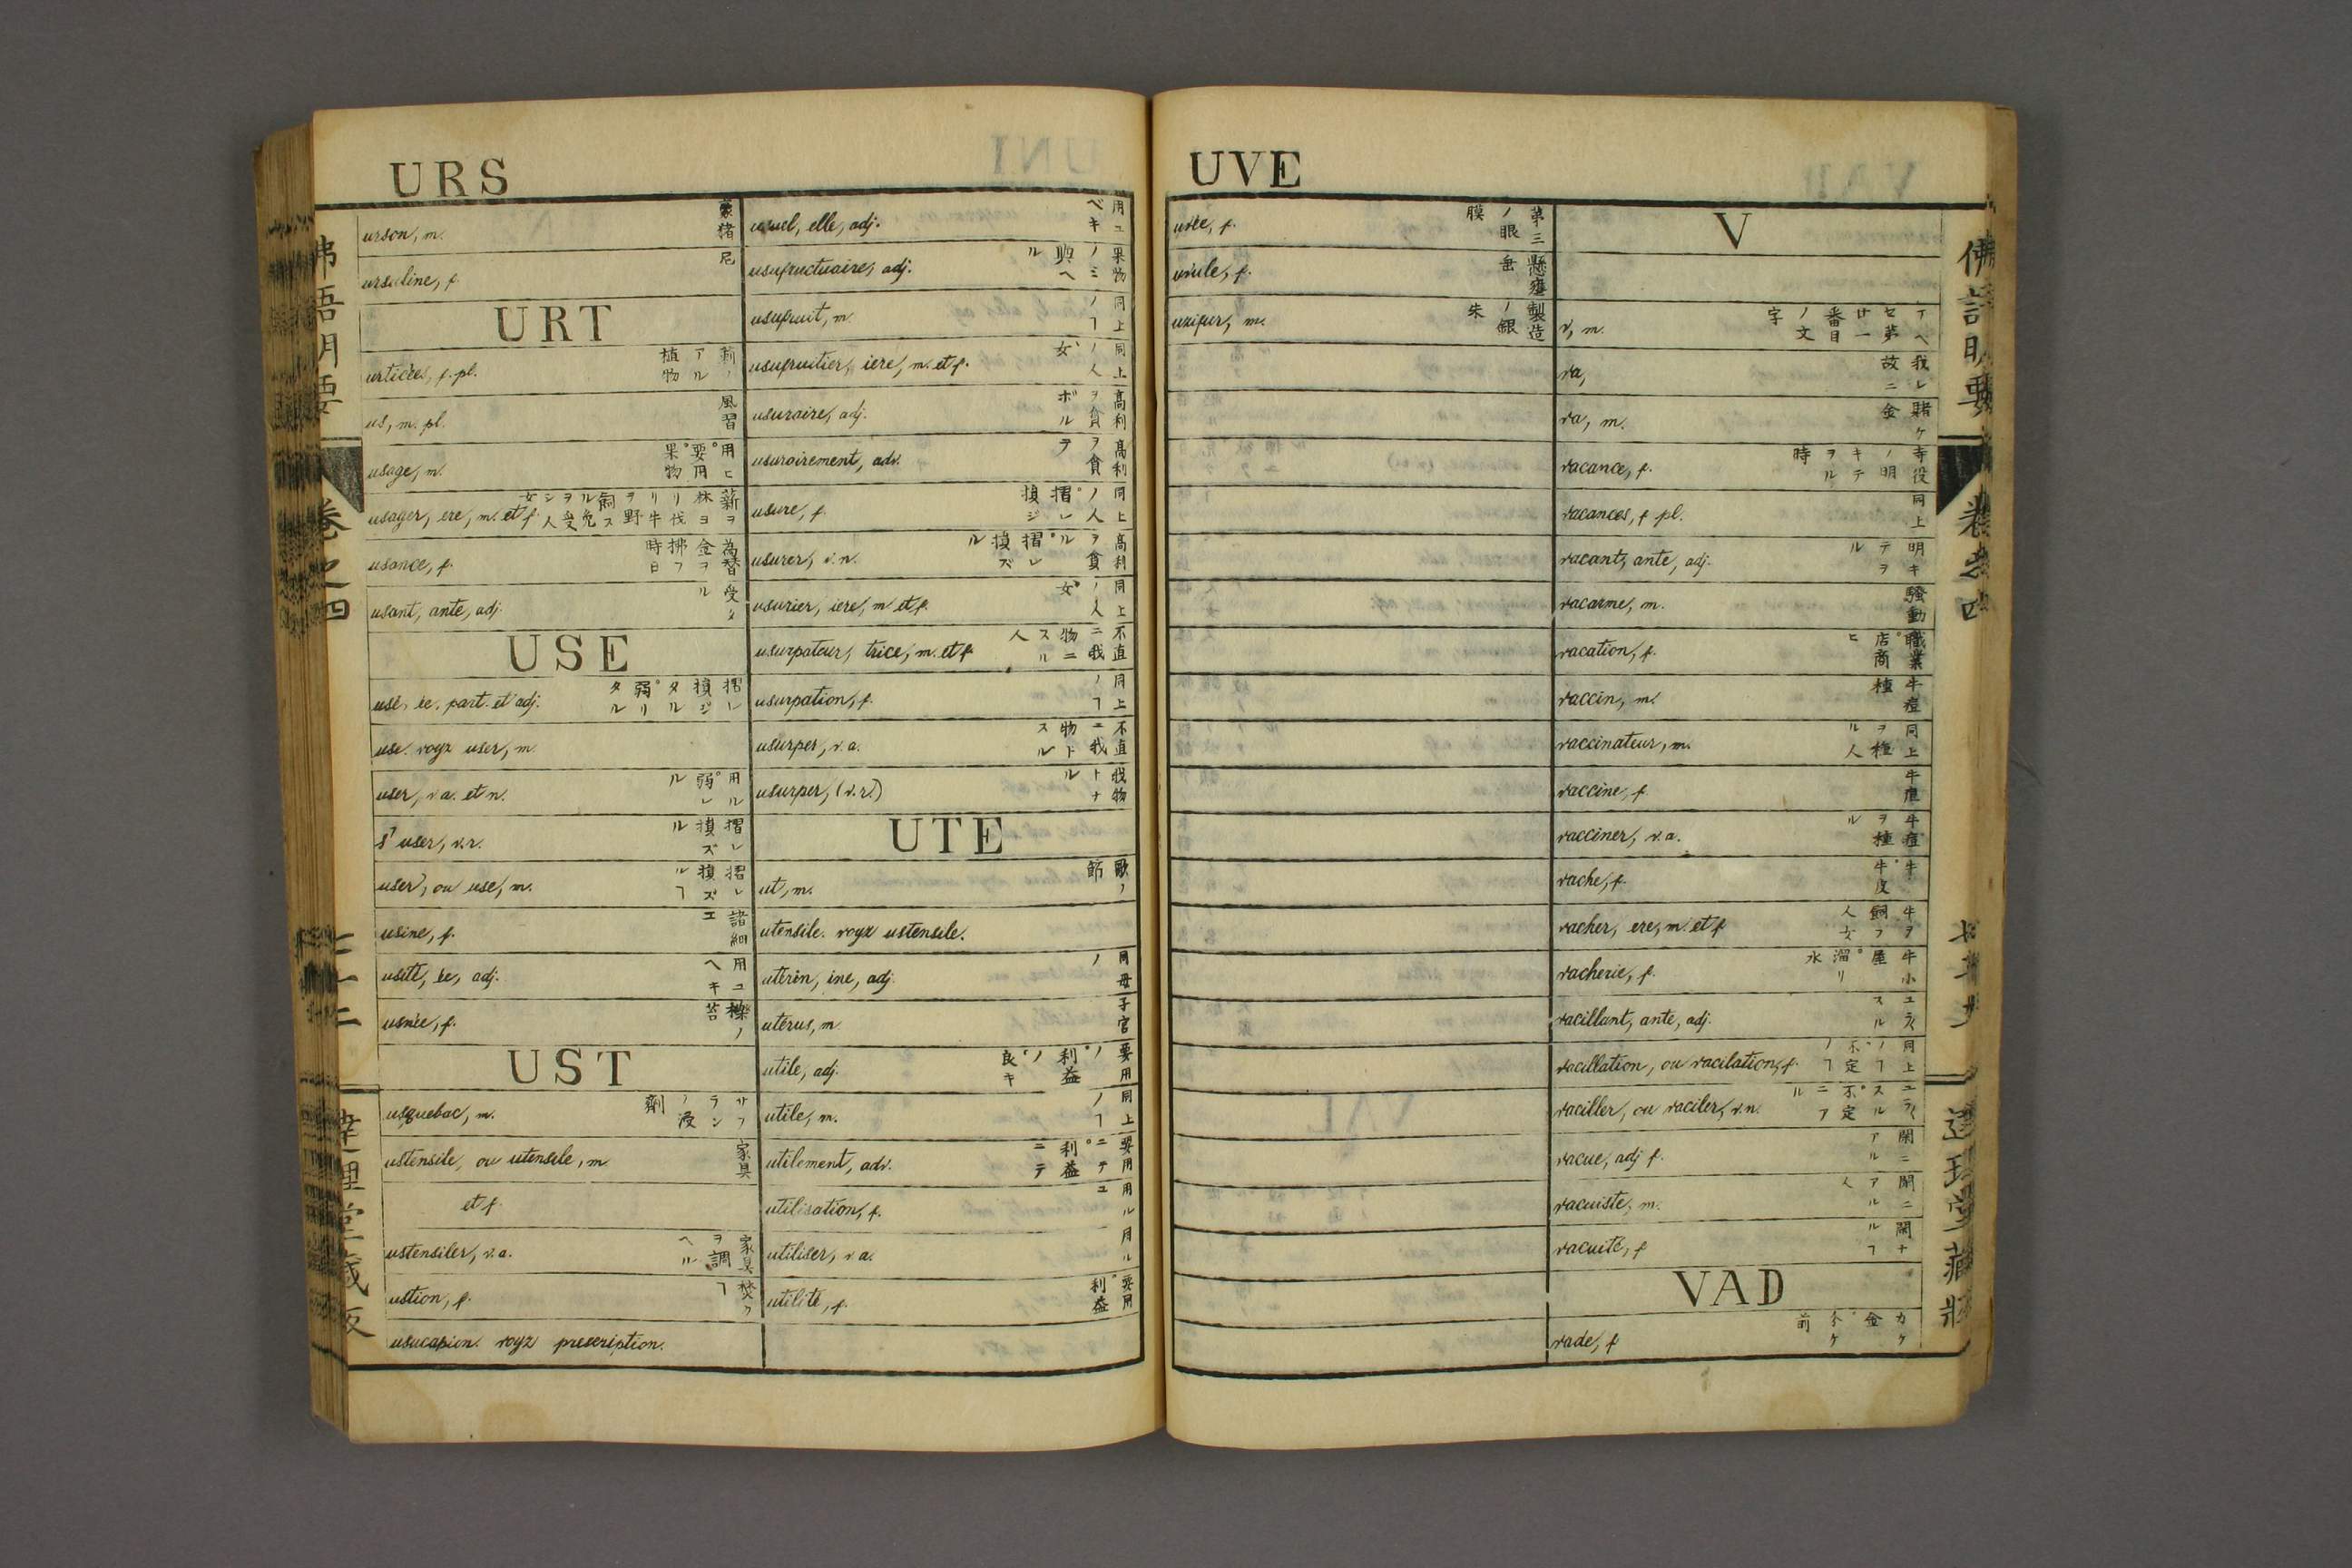 URS
urson, m. 豪猪
ursuline, f. 尼
URT
urticées, f. pl. 荊ノアル植物
us, m. pl. 風習
usage, m. 用ヒ。要用。果物
usager, ere, m. et f.
usance, f. 為替金ヲ拂フ時日
usant, ante, adj. 受タル
USE
usé, ée, part. et adj. 摺レ損ジタル。弱リタル
use. voyz user, m.
user, v. a. et n. 用ル。弱レル
s' user, v. r. 摺レ損ズル
user, ou use, m. 摺レ損ズルヿ
usine, f. 諸細工
usité, ée, adj. 用ユヘキ
usnée, f. 檪ノ苔
UST
usquebac, m. サフランノ浸劑
ustensile, ou utensile, m et f. 家具
ustensiler, v. a. 家具ヲ調ヘル
ustion, f. 焚フヿ
usucapion. voyz prescription.
usuel, elle, adj. 用ユベキ
usufructuaire, adj. 果物ノミ與ヘル
usufruit, m. 同上ノヿ
usufruitier, iere, m. et f. 同上ノ人。女
usuraire, adj. 高利ヲ貪ボル
usurairement, adv. 高利ヲ貪テ
usure, f. 同上ノ人。摺レ損ジ
usurer, v. n. 高利ヲ貪ル。摺レ損ズル
usurier, iere, m et f. 同上ノ人。女
usurpateur, trice, m. et f. 不直ニ我物ニスル人
usurpation, f. 同上ノヿ
usurper, v. a. 不直ニ我物トスル
usurper, (v. r.) 我物トナル
UTE
ut, m. 歌ノ節
utensile. voyz ustensile.
utérin, ine, adj. 同母ノ
utérus, m. 子宮
utile, adj. 要用ノ。利益ノ。良キ
utile, m. 同上ノヿ
utilement, adv. 要用ニテ。利益ニテ
utilisation, f. 用ユル
utiliser, v a. 用ル
utilité, f. 要用。利益
UVE
uvée, f. 第三ノ眼膜
uvule, f. 懸壅垂
uzifur, m. 製造ノ銀朱
V
v, m. アベセ第廿一番目ノ文字
va, 我レ故ニ
va, m. 賭ケ金
vacance, f. 寺役ノ明キテヲル時
vacances, f pl. 同上
vacant, ante, adj. 明キテヲル
vacarme, m. 騒動
vacation, f. 職業。店商ヒ
vaccin, m. 牛痘種
vaccinateur, m. 同上ヲ植ル人
vaccine, f. 牛痘
vacciner, v. a. 牛痘ヲ種ル
vache, f. 牛。牛皮
vacher, ere, m. et f 牛ヲ飼フ人。女
vacherie, f. 牛小屋。溜リ水
vacillant, ante, adj. ユラ〱スル
vacillation, ou vacilation, f. 同上ノヿ。不定ノヿ
vaciller, ou vaciler, v. n. ユラ〱スル。不定ニアル
vacue, adj f. 閑ニアル
vacuiste, m. 閑ニアル人
vacuité, f 閑ナルヿ
VAD
vade, f カケ金
佛語明要
卷之四
佛語明要
卷之四